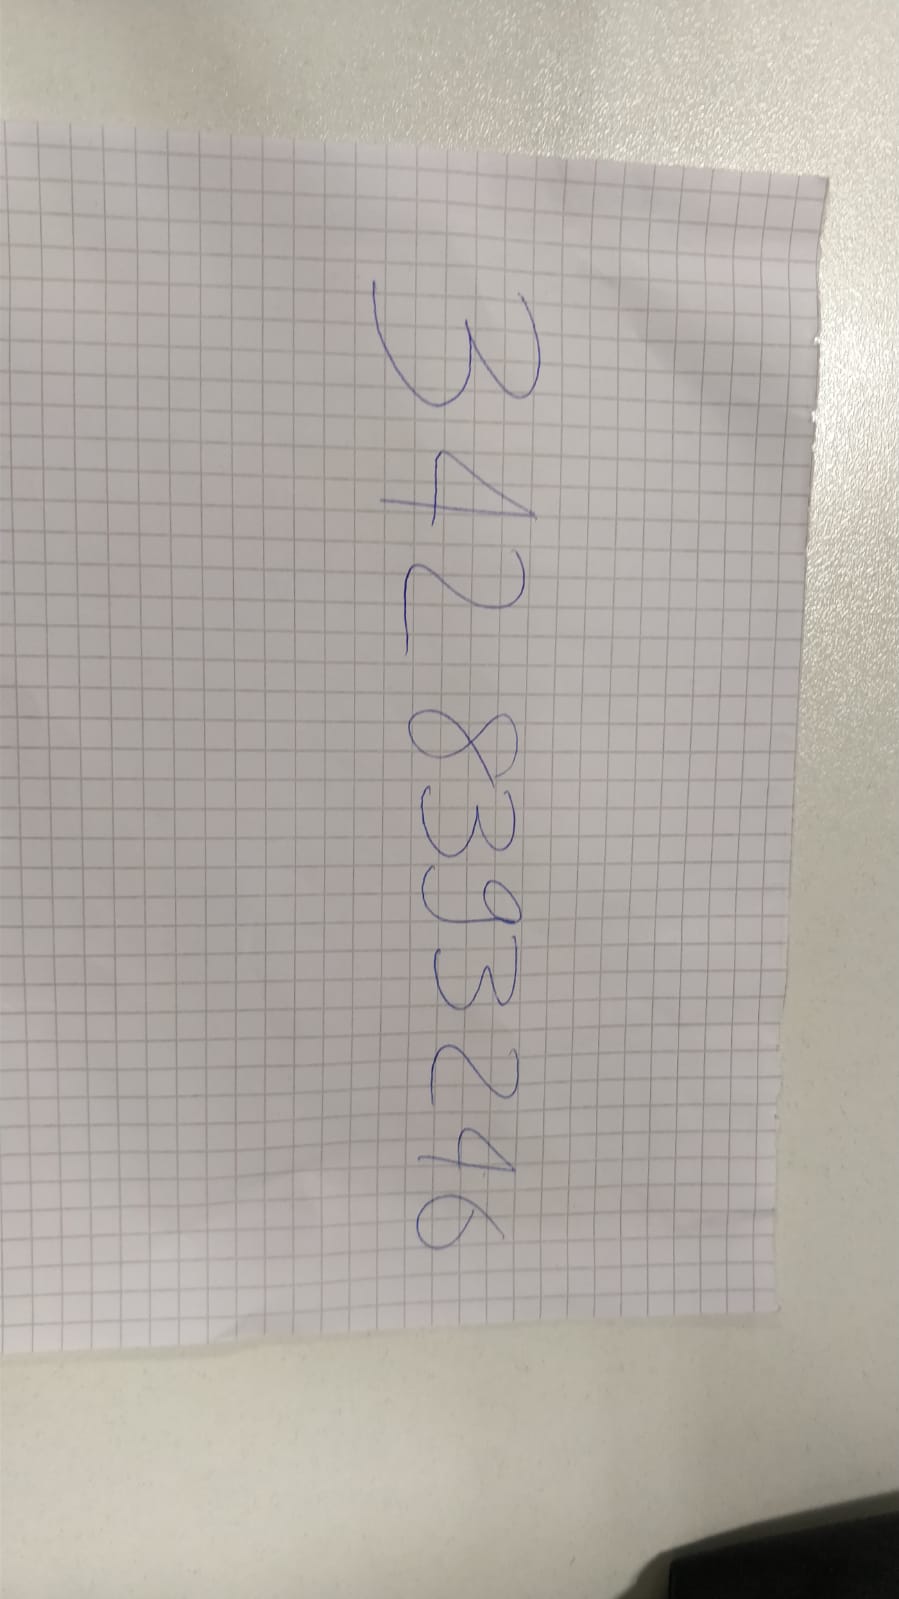 342 8393246